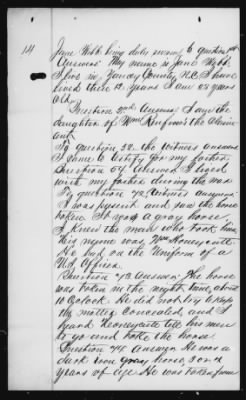 14
Jane Webb being duly sworn to Question 1st
Answers My name is Jane Webb
I live in Yancey County N.C. I have
lived there 12 years I am 28 years
old
Question 2nd Answer I am the
daughter of Wm the Claim
ant
To question 22. the witness answers
I came to testify for my father
Question 64 Answer I lived
with my father during the war
To question 72, Witness answers
I was present and saw the horse
taken It was a gray horse
I knew the man who took him
His name was Wm Honeycutt
He had on the Uniform of a
U.S. Officer
Question 73 Answer The horse
was taken in the night time, about
10 Oclock. He did not try to keep
the matter concealed and I
heard Honeycutt tell his men
to go and take the horse
Question 74 Answer He was a
dark iron gray horse 3 or 4
years of age. He was taken from